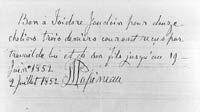 Bon à Isidore Jaudoin pour douze
chelins trois deniers courant reçus par
travail de lui et de son fils jusqu'au 19
Juin 1852
2 Juillet 1852 Papineau